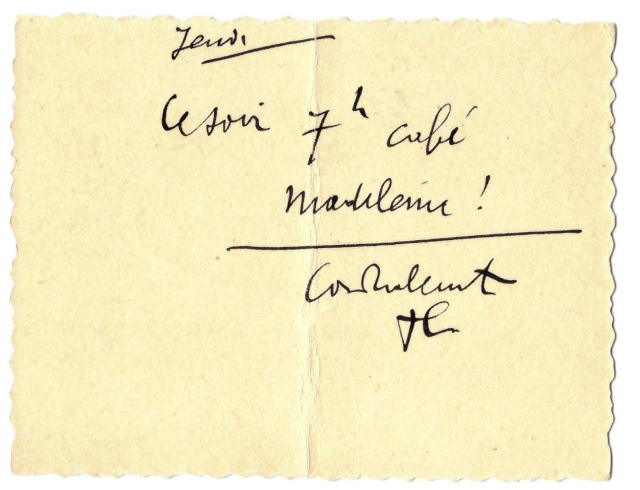 Jeudi
Ce soir 7h café
Madeleine !
Cordialement